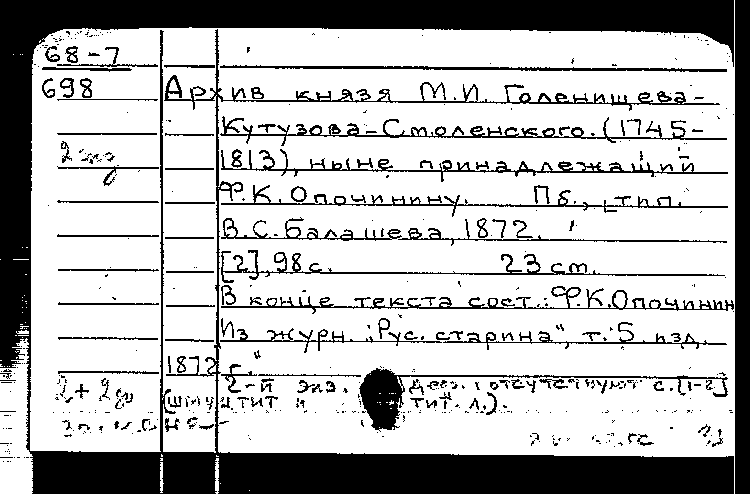 68-7
698
Архив князя М.И. Голенищева-
Кутузова-Смоленского. (1745-
2 экз
1813), ныне принадлежащий
Ф.К. Опочинину. Пб., тип.
В.С. Балашева, 1872.
[2], 98 с. 23 cm.
В конце текста сост.: Ф.К. Опочинин
Из журн. "Рус. старина", т. 5. изд.
1872 г."
2-й экз. отсутствуют с. [1-2]
(шмуцтит и тит. л.).